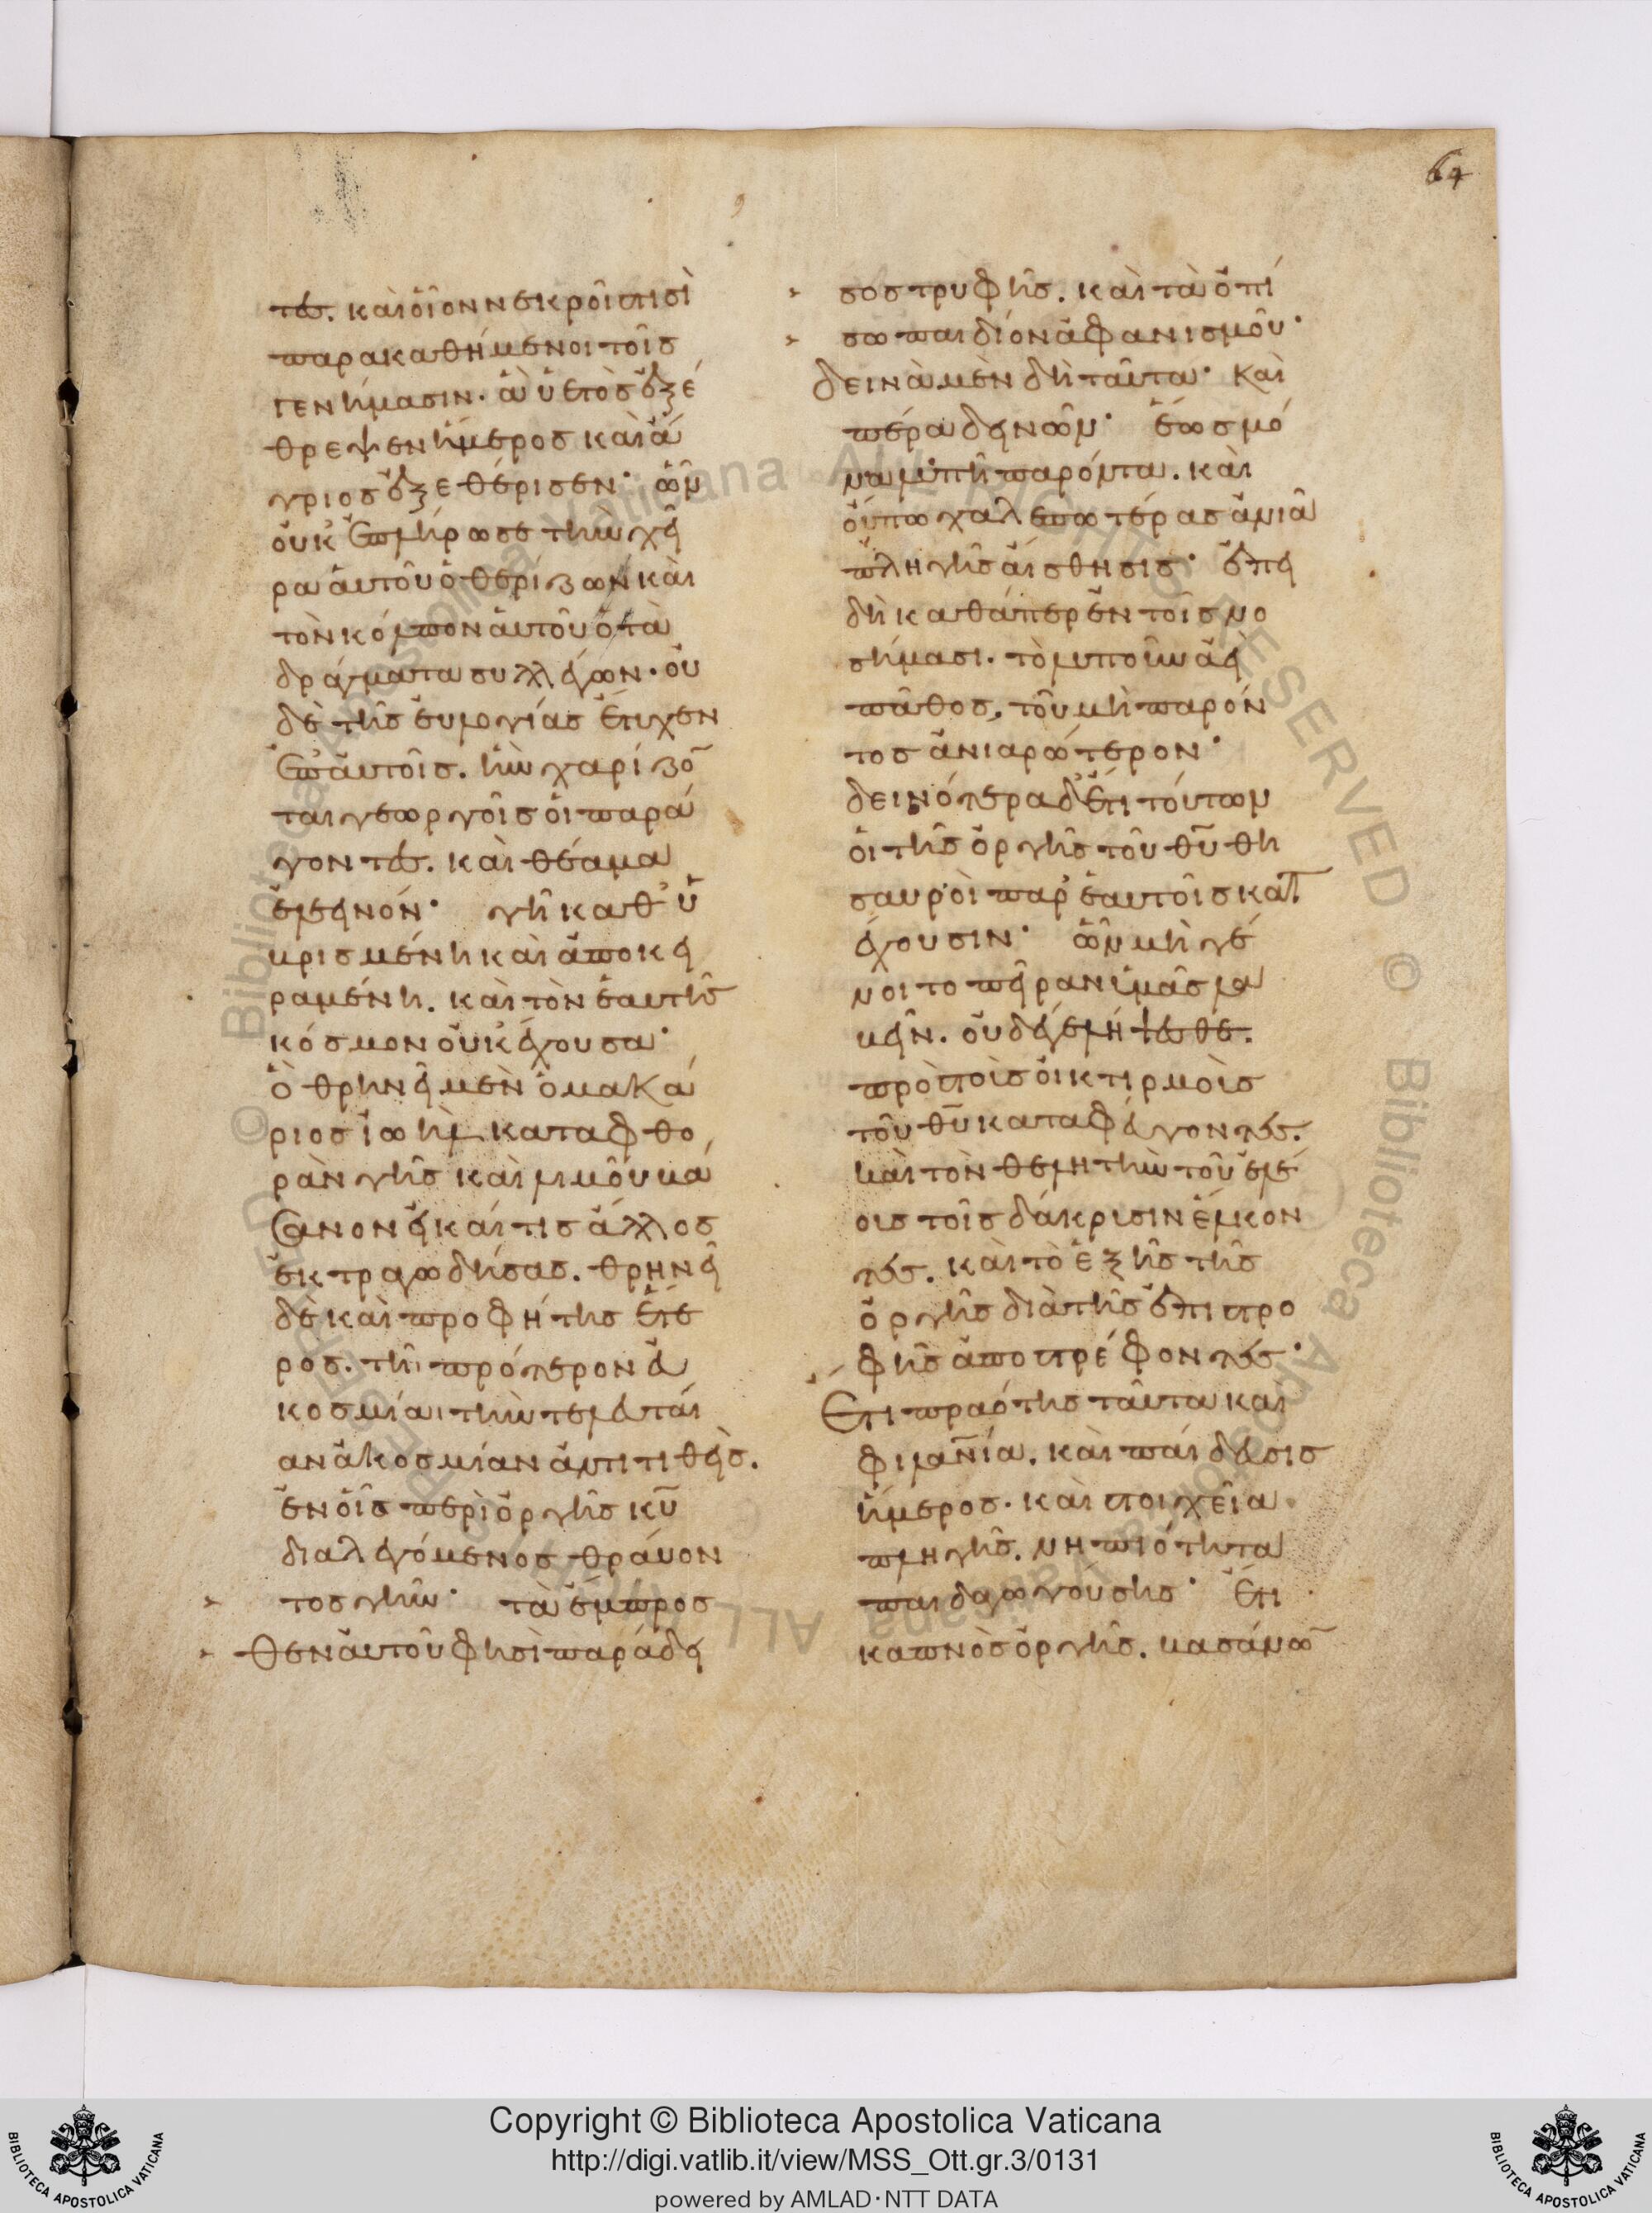 64
τες. καὶ οἷον νεκροῖς τισὶ
παρακαθήμενοι τοῖς
γεννήμασιν. ἃ ὑετὸς ἐξέ
θρεψεν ἥμερος καὶ ἄ
γριος ἐξεθέρισεν· ὧν
οὐκ ἐπλήρωσε τὴν χεῖ
ρα αὐτοῦ ὁ θερίζων καὶ
τὸν κόλπον αὐτοῦ ὁ τὰ
δράγματα συλλέγων. οὐ
δὲ τῆς εὐλογίας ἔτυχεν
ἐπ' αὐτοῖς. ἣν χαρίζο
ται γεωργοῖς οἱ παρά
γοντες. καὶ θέαμα
ἐλεεινόν· γῆ καθυ
βρισμένη καὶ ἀποκε
ραμένη. καὶ τὸν ἑαυτῆς
κόσμον οὐκ ἔχουσα·
ὃ θρηνεῖ μὲν ὁ μακά
ριος ἰωὴλ καταφθο
ρὰν γῆς καὶ λιμοῦ βά
σανον εἰ καί τις ἄλλος
ἐκτραγωδήσας. θρηνεῖ
δὲ καὶ προφήτης ἕτε
ρος. τῇ πρότερον εὐ
κοσμίαι τὴν τελευταί
αν ἀκοσμίαν ἀντιτιθείς.
ἐν οἷς περὶ ὀργῆς κυ
διαλεγόμενος θραύον
τος γῆν· τὰ ἔμπροσ
θεν αὐτοῦ φησὶ παράδει
σος τρυφῆς. καὶ τὰ ὀπί
σω παιδίον ἀφανισμοῦ·
δεινὰ μὲν δὴ ταῦτα· καὶ
πέρα δεινῶν· ἕως μό
να λυπῇ παρόντα. καὶ
οὔπω χαλεπωτέρας ἀνιᾷ
πληγῆς αἴσθησις· ἐπει
δὴ καθάπερ ἐν τοῖς νο
σήμασι. τὸ λυποῦν ἀεὶ
πάθος, τοῦ μὴ παρόν
τος ἀνιαρώτερον·
δεινότερα δ' ἔτι τούτων
οἱ τῆς ὀργῆς τοῦ θυ θη
σαυροὶ παρ' ἑαυτοῖς κατ
έχουσιν· ὧν μὴ γέ
νοιτο πεῖραν ἡμᾶς λα
βεῖν. οὐδὲ λήψεσθε.
πρὸς τοὺς οἰκτιρμοὺς
τοῦ θυ καταφεύγοντες.
καὶ τὸν θελητὴν τοῦ ἐλέ
ους τοῖς δάκρυσιν ἕλκον
τες. καὶ τὸ ἑξῆς τῆς
ὀργῆς διὰ τῆς ἐπιστρο
φῆς ἀποστρέφοντες·
Ἔτι πραότης ταῦτα καὶ
φιλανία. καὶ παίδευσις
ἥμερος. καὶ στοιχεῖα
πληγῆς. νηπιότητα
παιδαγωγούσης· ἔτι
καπνὸς ὀργῆς. βασάνω
Copyright © Biblioteca Apostolica Vaticana
http://digi.vatlib.it/view/MSS_Ott.gr.3/0131
powered by AMLAD·NTT DATA